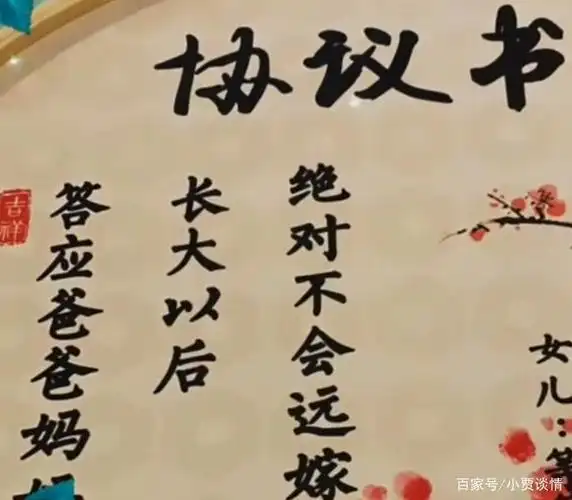 协议书
吉祥
答应爸爸妈妈
长大以后
绝对不会远嫁
女儿：
百家号/小贾谈情